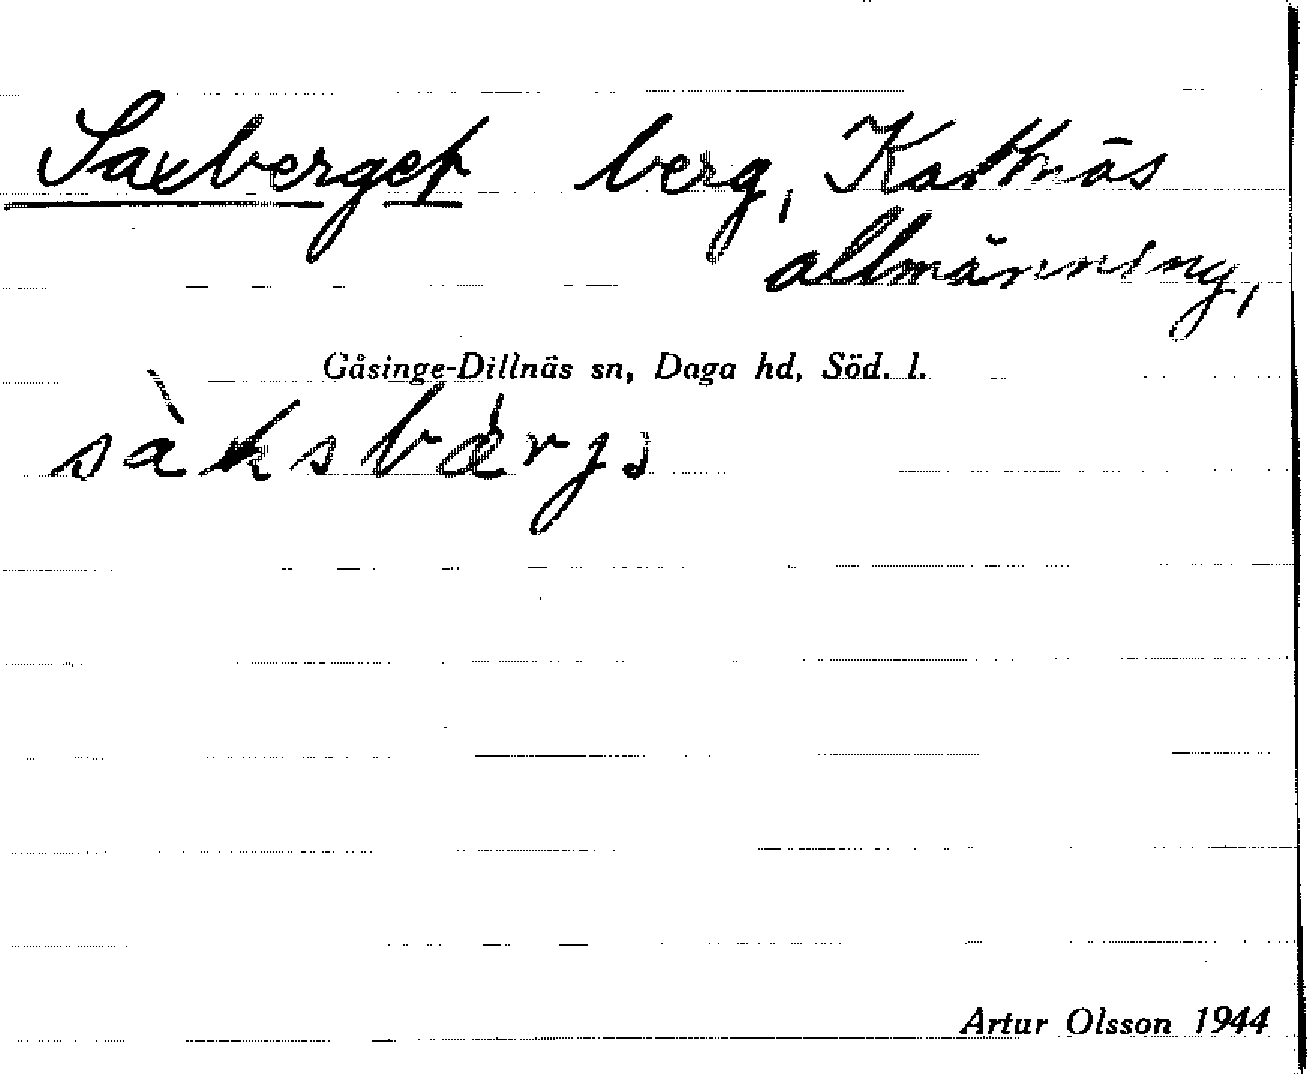 Saxberget berg, Kattnäs
allmänning,
Gåsinge-Dillnäs sn, Daga hd, Söd. l.
sàksbárjə
Artur Olsson 1944